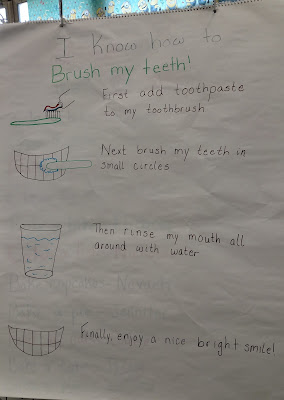 I Know how to
Brush my teeth!
First add toothpaste
to my toothbrush
Next brush my teeth in
small circles
Then rinse my mouth all
around with water
Finally, enjoy a nice bright smile!